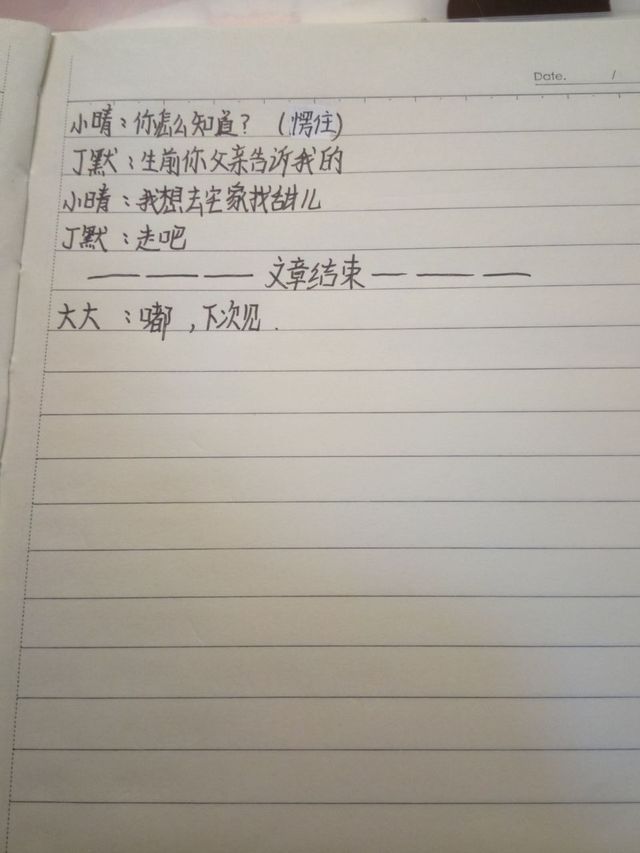 Date. /
小晴：你怎么知道？（愣住）
丁默：生前你父亲告诉我的
小晴：我想去宅家找甜儿
丁默：走吧
— — — 文章结束 — — —
大大：嘟，下次见.